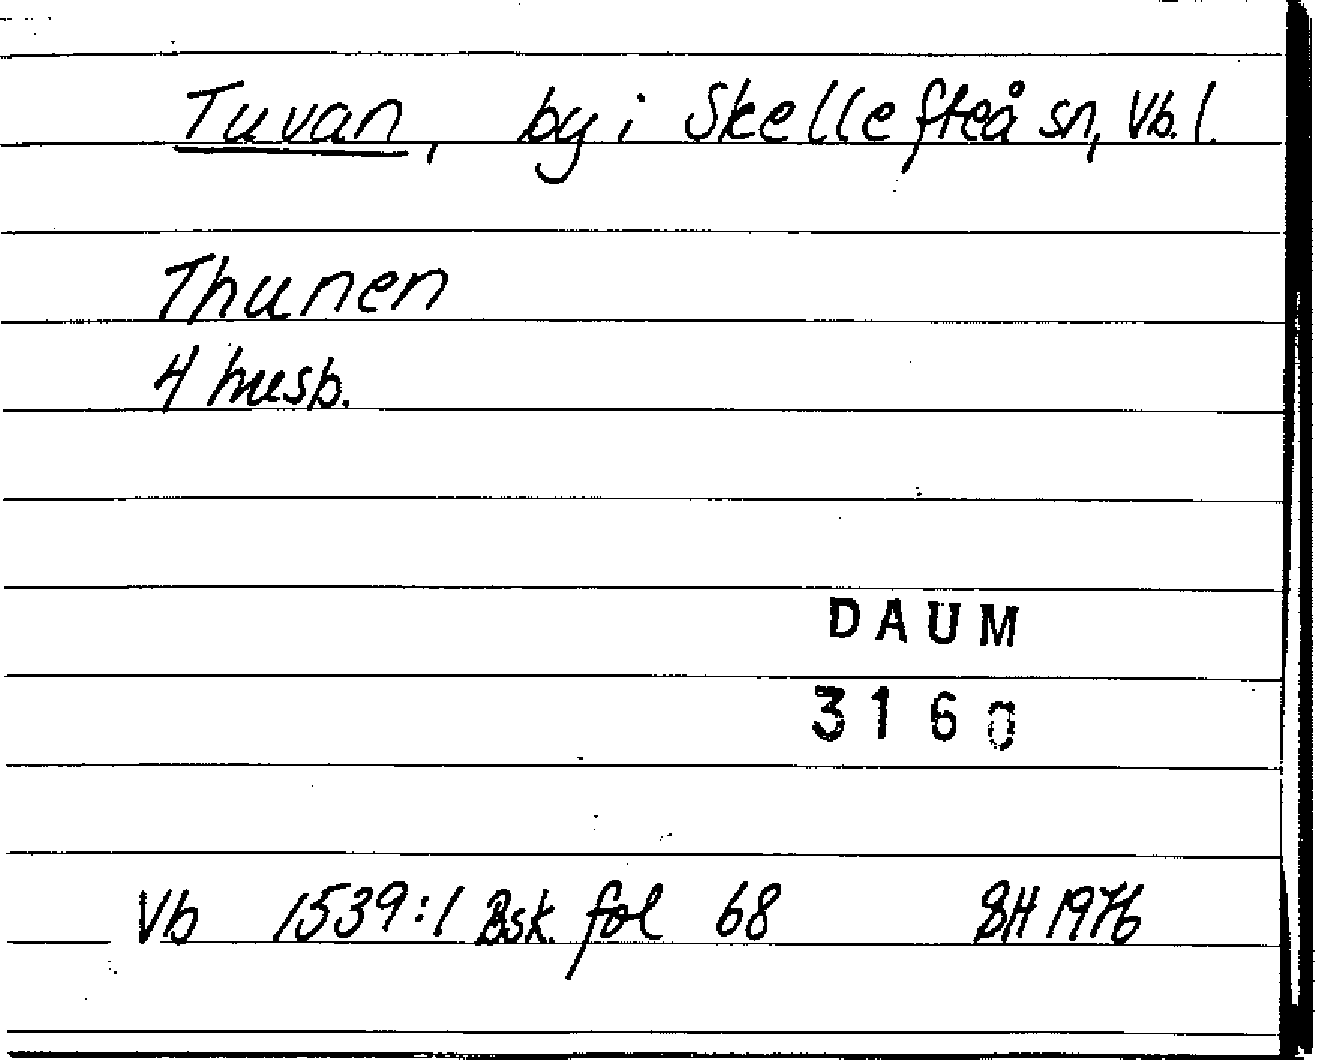 Tuvan, by i Skellefteå sn, Vb. l.
Thunen
4 husb.
DAUM
3160
Vb 1539:1 Bsk. fol 68 BH 1976